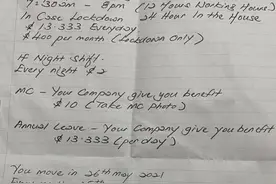 7:30am - 8pm (12 Hours Working Hours)
In Case Lockdown 24 Hour In the House
$ 13.333 Everyday
$400 per month (Lockdown Only)
If Night Shift.
Every night $2
MC - Your Company give you benefit
$10 (Take MC photo)
Annual Leave - Your Company give you benefit
$ 13.333 (per day)
You move in 26th May 2021